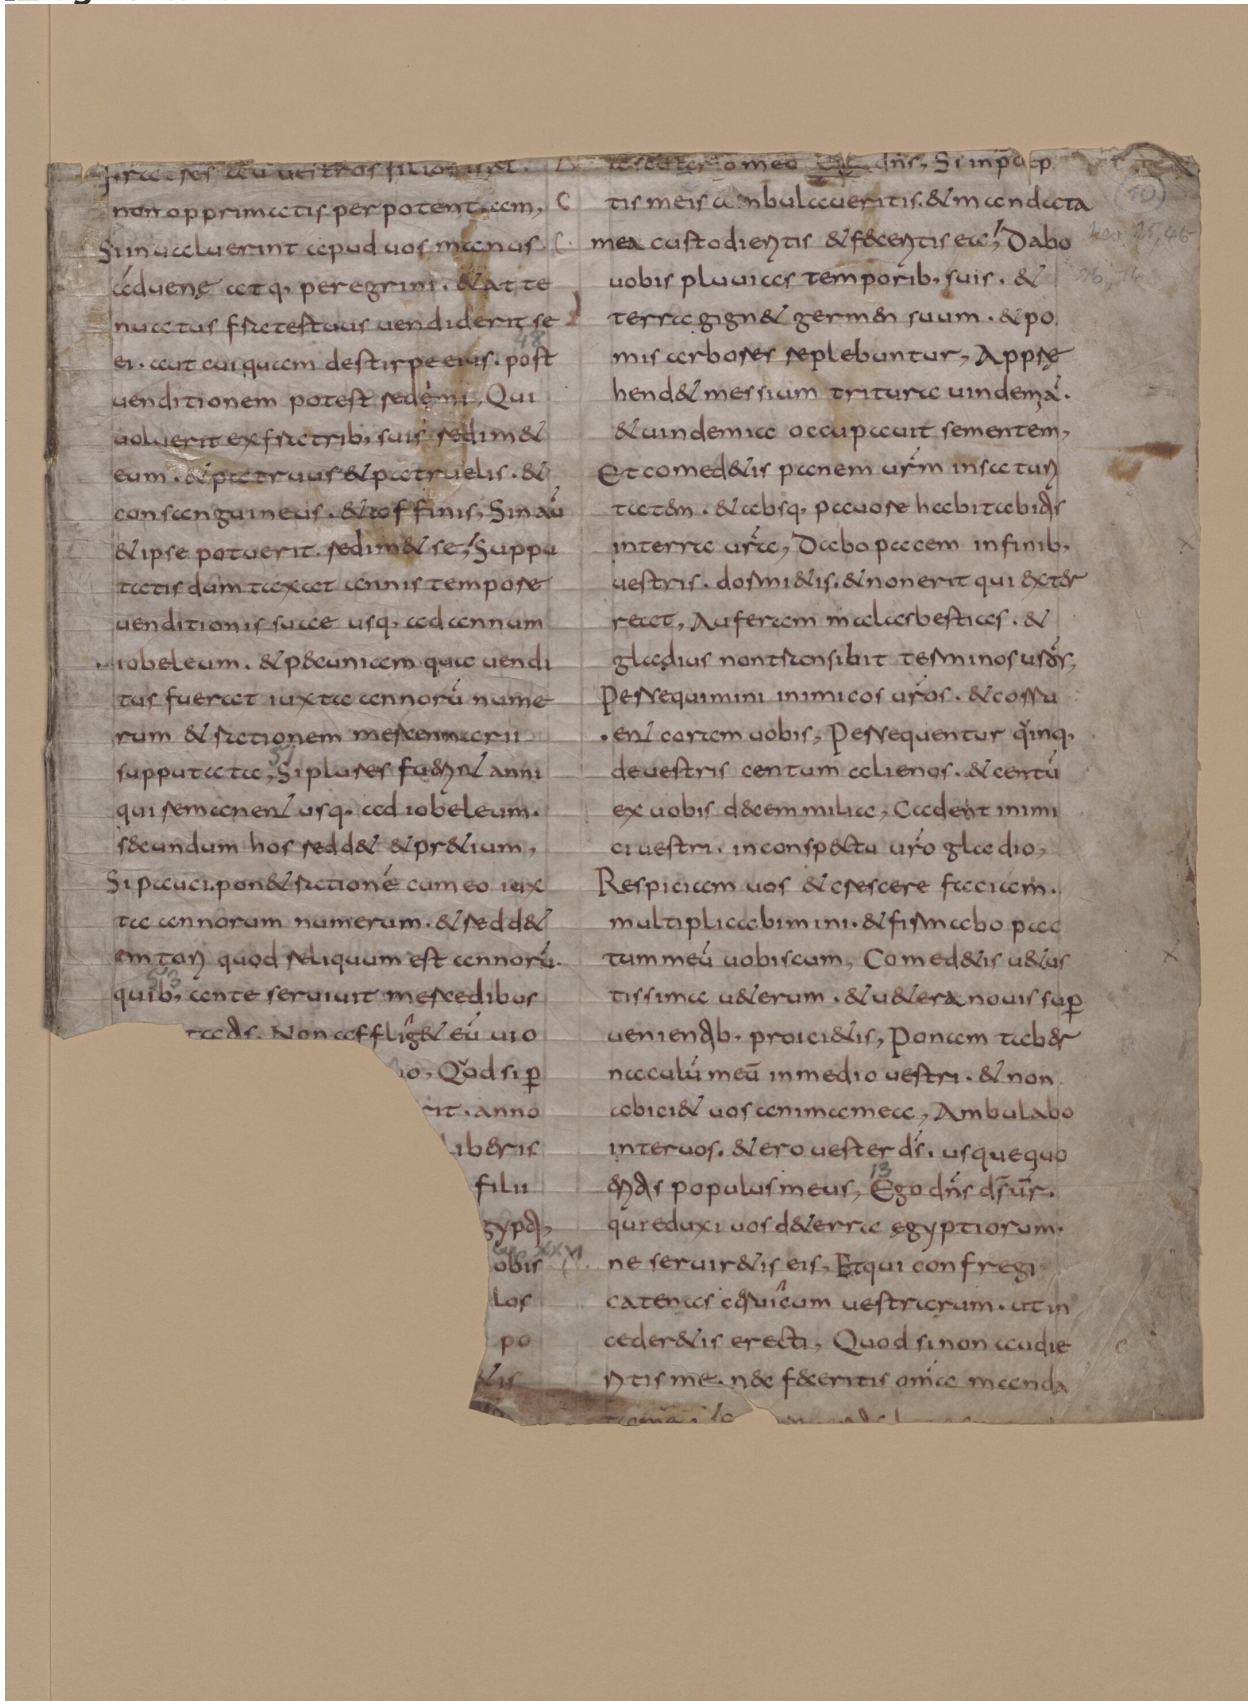 fratres autem vestros filios isrl.
non opprimatis per potentiam,
Si invaluerint apud vos manus
advene atq, peregrini. & atte
nuatus frater tuus vendiderit se
ei. aut cuiquam de stirpe eius. post
venditionem potest redemi, Qui
voluerit ex fratrib, suis redim&
eum. & patruus & patruelis. &
consanguineus. & affinis, Sin aū
& ipse potuerit. redim& se, Suppu
tatis dumtaxat annis tempore
venditionis suae usq, ad annum
iobeleum. & pecuniam qua vendi
tus fuerat iuxta annorū nume
rum & rationem mercennarii
supputata, Si plures fuerint anni
qui remanent usq, ad iobeleum.
secundum hos redd& & pretium,
Si pauci. pon& rationē cum eo iux
ta annorum numerum. & redd&
emtori quod reliquum est annorū.
quib, ante servivit mercedibus
tatis. Non afflig& eū vio
io, Qđ si p
rit. anno
liberis
filii
gypti,
obis
los
po
&is
sanctuario meo dn̄s, Si in p̄cep
tis meis ambulaveritis. & mandata
mea custodieritis & feceritis ea, Dabo
vobis pluvias temporib, suis. &
terra gign& germen suum. & po
mis arbores replebuntur, Appre
hend& messium tritura vindemiā.
& vindemia occupavit sementem,
Et comed&is panem vr̄m in saturi
tatem. & absq, pavore habitabitis
in terra vr̄a, Dabo pacem in finib,
vestris. dormi&is. & non erit qui exter
reat, Auferam malas bestias. &
gladius non transibit terminos vr̄os,
Persequimini inimicos vr̄os. & corru
ent coram vobis, Persequentur qinq,
de vestris centum alienos. & centū
ex vobis decem milia, Cadent inimi
ci vestri. in conspectu vr̄o gladio,
Respiciam vos & crescere faciam.
multiplicabimini. & firmabo pac
tum meū vobiscum, Comed&is v&us
tissima v&erum. & v&era novis sup
venientib. proici&is, Ponam taber
naculū meū in medio vestri. & non
abici& vos anima mea, Ambulabo
inter vos. & ero vester ds̄. vosque quo
eritis populus meus, Ego dn̄s ds̄ vr̄.
qui eduxi vos de terra egyptiorum.
ne servir&is eis, Et qui confregi
catenas cervicum vestrarum. ut in
ceder&is erecti, Quod si non audie
ritis me. nec feceritis om̄ia manda